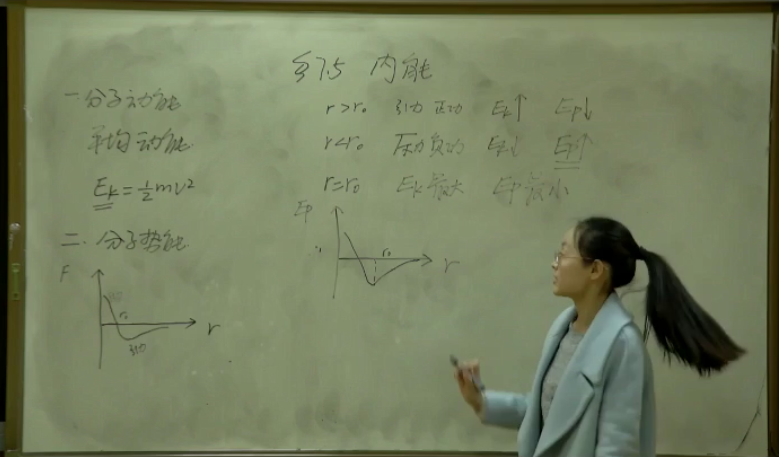 §7.5 内能
一.分子动能
平均动能
Ek=½mv²
二.分子势能
F
r₀
引力
r
r>r₀ 引力 正功 Ek↑ Ep↓
r<r₀ 斥力 负功 Ek↓ Ep↑
r=r₀ Ek最大 Ep最小
Ep
r₀
r